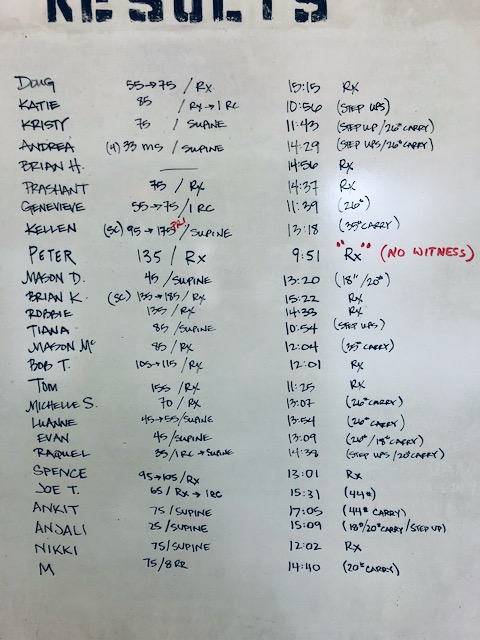 RESULTS
DOUG 55→75 / RX 15:15 RX
KATIE 85 / RX→1 RC 10:56 (STEP UPS)
KRISTY 75 / SUPINE 11:43 (STEP UP/26# CARRY)
ANDREA (H) 33 ms / SUPINE 14:29 (STEP UPS/26# CARRY)
BRIAN H. —— 14:56 RX
PRASHANT 75 / RX 14:37 RX
GENEVIEVE 55→75 / 1 RC 11:39 (26#)
KELLEN (SC) 95→175 PR! / SUPINE 13:18 (35# CARRY)
PETER 135 / RX 9:51 "RX" (NO WITNESS)
MASON D. 45 / SUPINE 13:20 (18"/20#)
BRIAN K. (SC) 135→185 / RX 15:22 RX
ROBBIE 135 / RX 14:33 RX
TIANA 85 / SUPINE 10:54 (STEP UPS)
MASON Mc 85 / RX 12:04 (35# CARRY)
BOB T. 105→115 / RX 12:01 RX
TOM 155 / RX 11:25 RX
MICHELLE S. 70 / RX 13:07 (26# CARRY)
LUANNE 45→55 / SUPINE 13:54 (26# CARRY)
EVAN 45 / SUPINE 13:09 (26#/18# CARRY)
RAQUEL 35 / 1 RC→SUPINE 14:33 (STEP UPS/20# CARRY)
SPENCE 95→105 / RX 13:01 RX
JOE T. 65 / RX→1RC 15:31 (44#)
ANKIT 75 / SUPINE 17:05 (44# CARRY)
ANJALI 25 / SUPINE 15:09 (18#/20# CARRY/STEP UP)
NIKKI 75 / SUPINE 12:02 RX
M 75 / 8 RR 14:40 (20# CARRY)